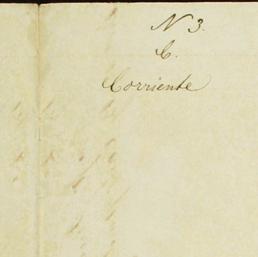 N 3.
C.
Corriente